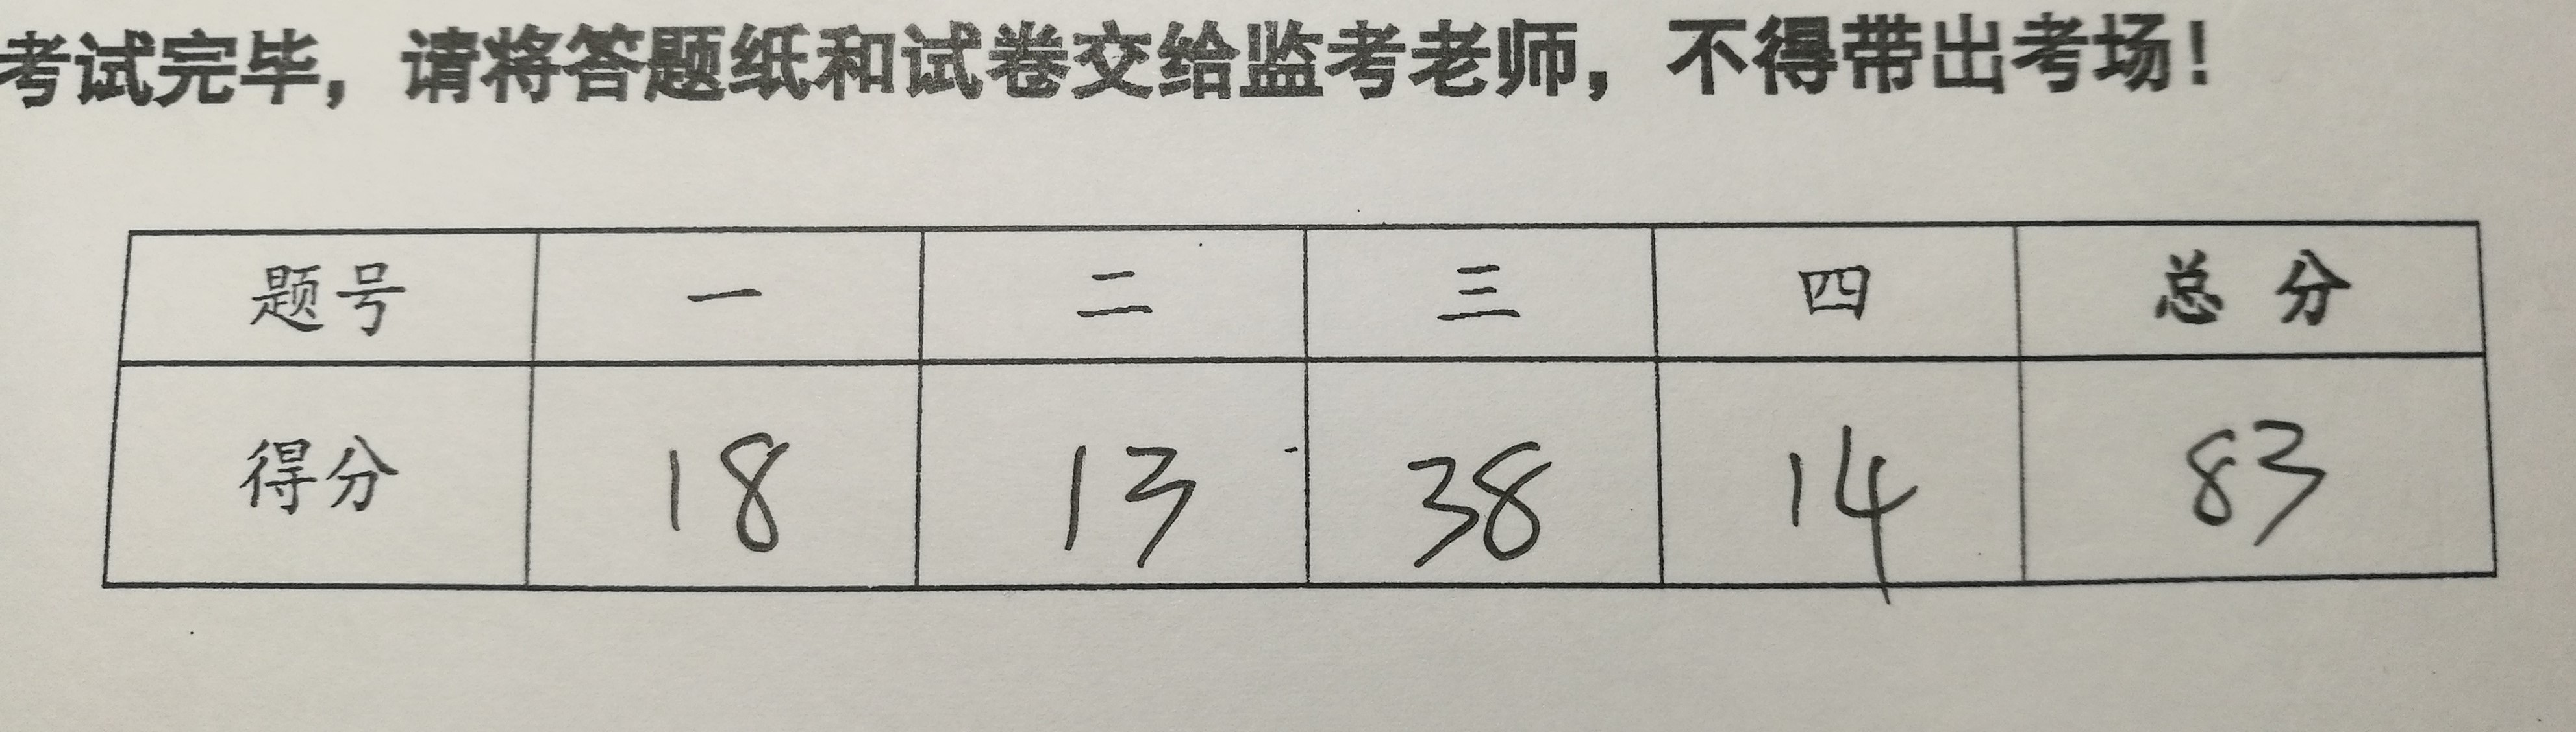 考试完毕，请将答题纸和试卷交给监考老师，不得带出考场！
题号 一 二 三 四 总分
得分 18 13 38 14 83